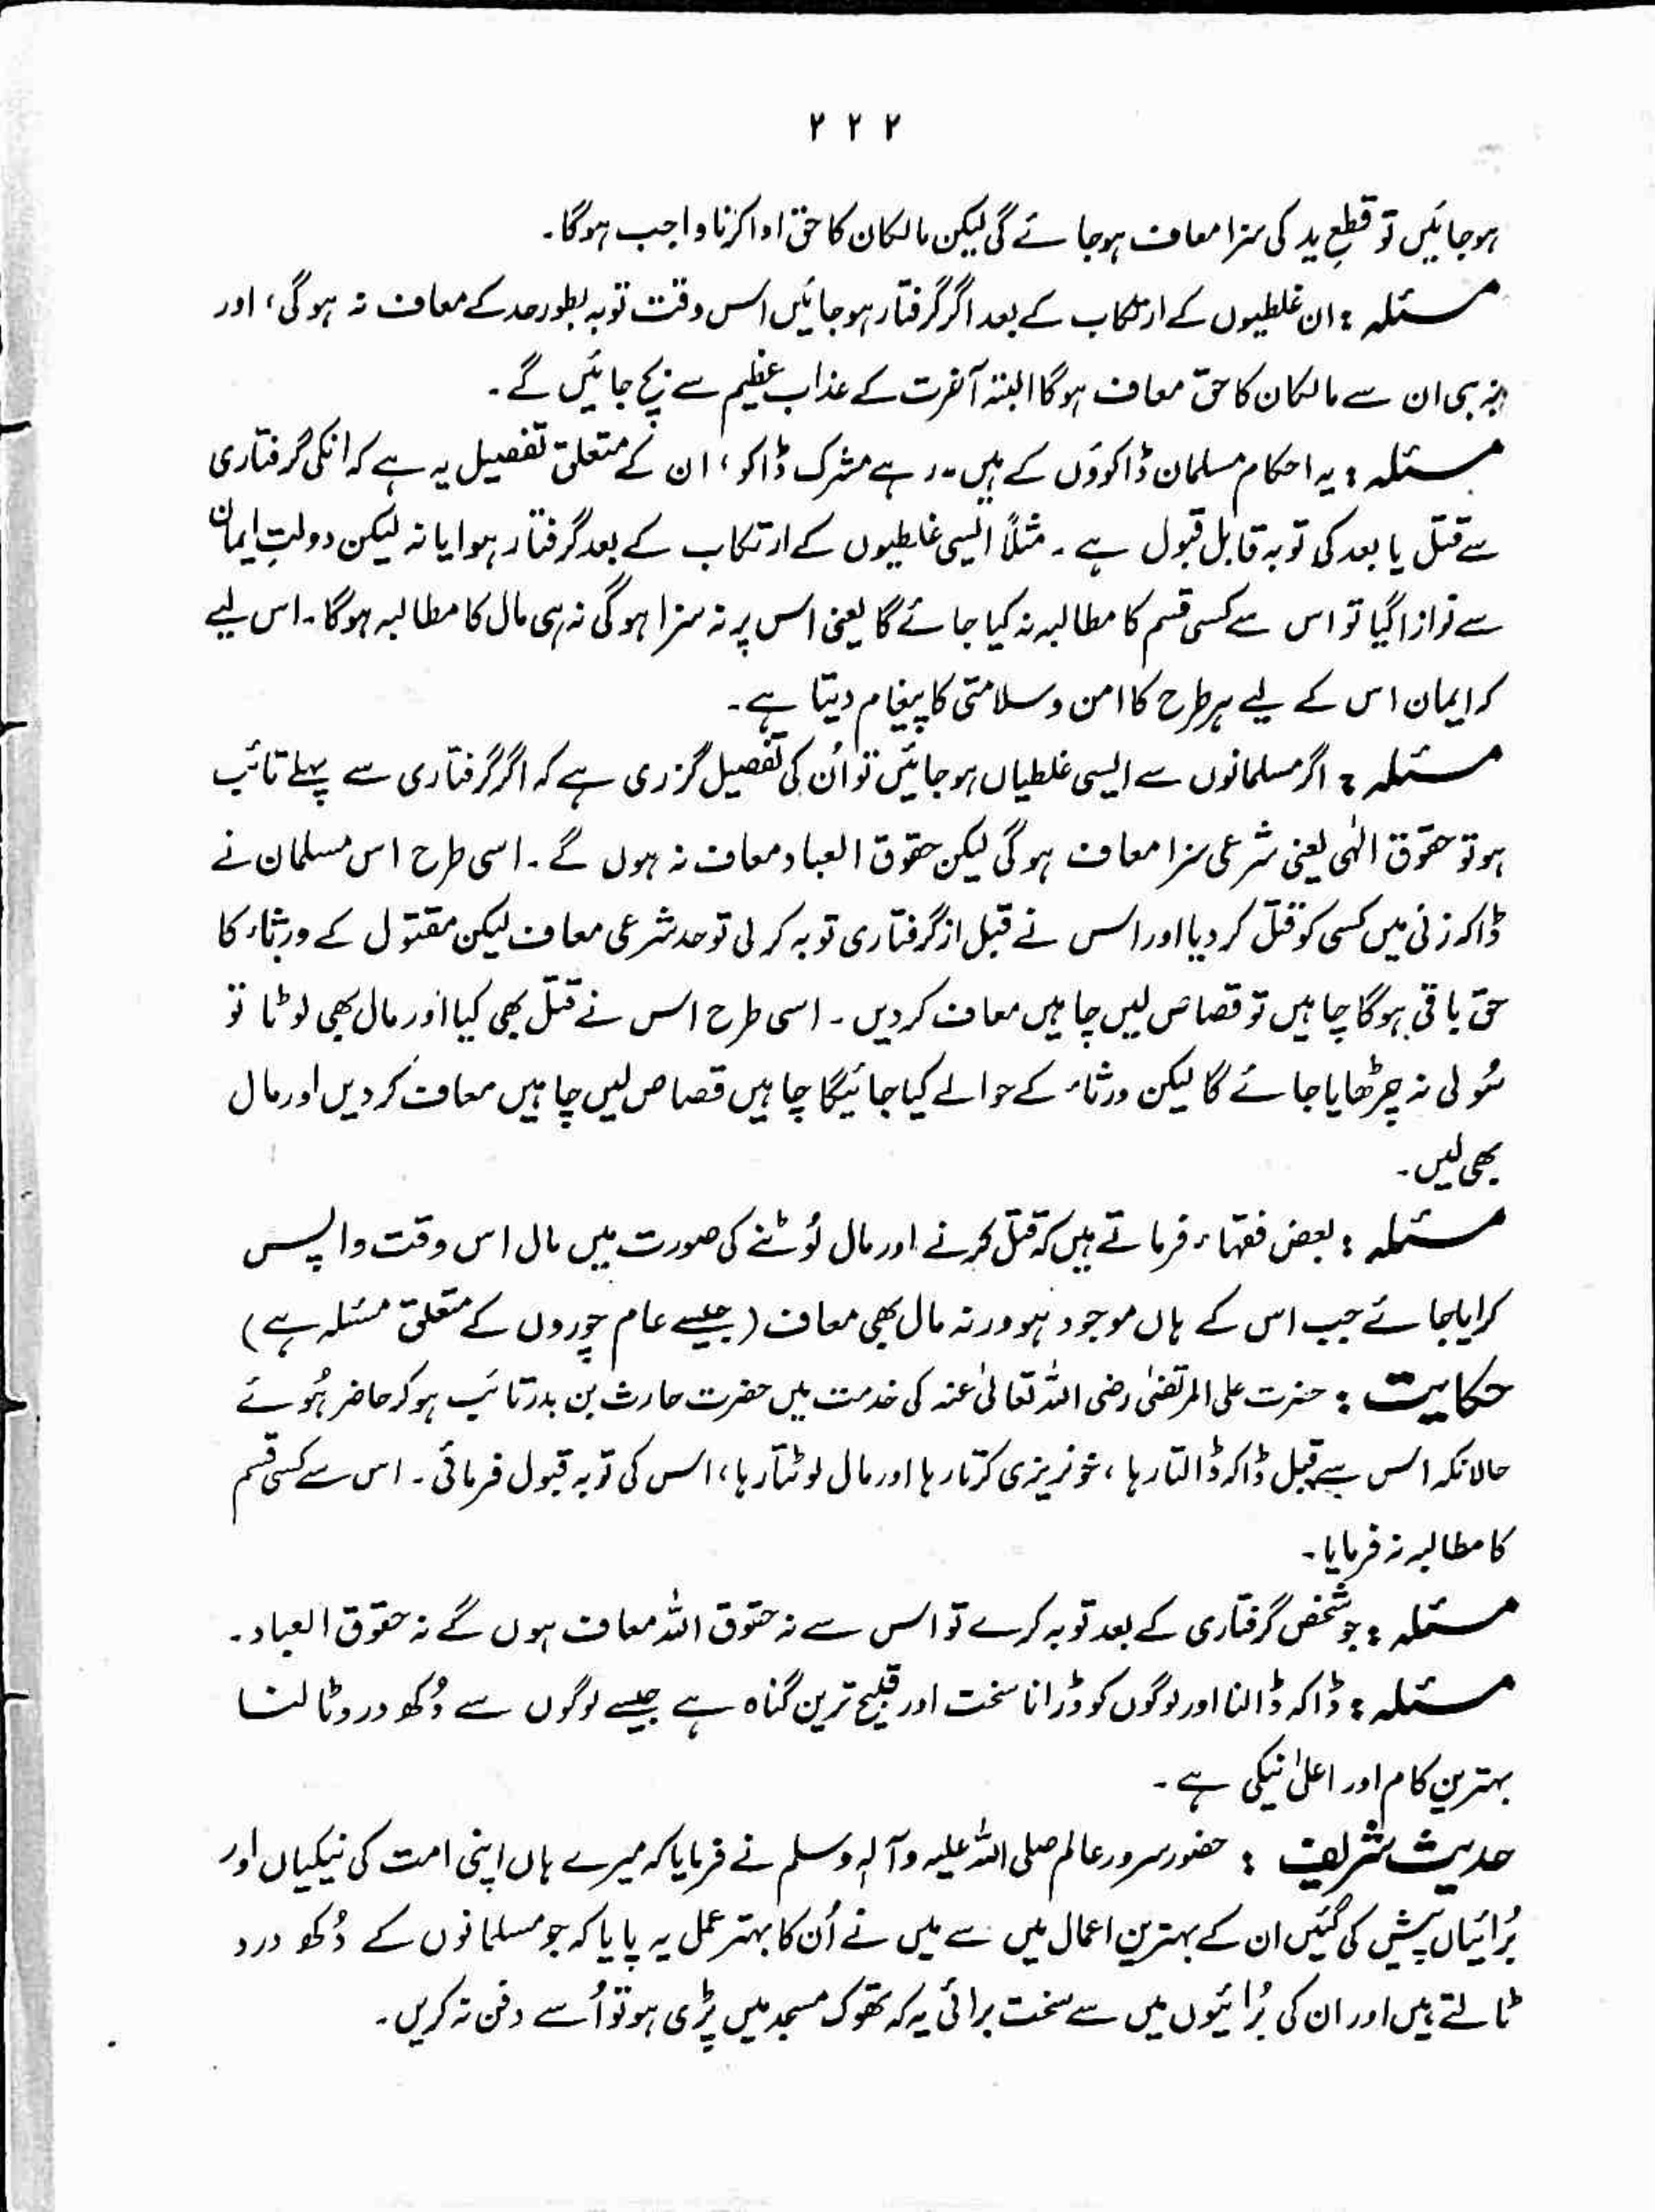 ۲۲۲
ہوجائیں تو قطعِ ید کی سزا معاف ہوجائے گی لیکن مالکان کا حق ادا کرنا واجب ہوگا۔
مسئلہ : ان غلطیوں کے ارتکاب کے بعد اگر گرفتار ہوجائیں اس وقت توبہ بطور حد کے معاف نہ ہوگی، اور
نہ ہی ان سے مالکان کا حق معاف ہوگا البتہ آخرت کے عذاب عظیم سے بچ جائیں گے۔
مسئلہ : یہ احکام مسلمان ڈاکوؤں کے ہیں۔ رہے مشرک ڈاکو، ان کے متعلق تفصیل یہ ہے کہ انکی گرفتاری
سے قتل یا بعد کی توبہ قابل قبول ہے۔ مثلاً ایسی غلطیوں کے ارتکاب کے بعد گرفتار ہوا یا نہ لیکن دولتِ ایمان
سے نوازا گیا تو اس سے کسی قسم کا مطالبہ نہ کیا جائے گا یعنی اس پر نہ سزا ہوگی نہ ہی مال کا مطالبہ ہوگا۔ اس لیے
کہ ایمان اس کے لیے ہر طرح کا امن و سلامتی کا پیغام دیتا ہے۔
مسئلہ : اگر مسلمانوں سے ایسی غلطیاں ہوجائیں تو اُن کی تفصیل گزری ہے کہ اگر گرفتاری سے پہلے تائب
ہو تو حقوق الٰہی یعنی شرعی سزا معاف ہوگی لیکن حقوق العباد معاف نہ ہوں گے۔ اسی طرح اس مسلمان نے
ڈاکہ زنی میں کسی کو قتل کر دیا اور اس نے قبل از گرفتاری توبہ کر لی تو حد شرعی معاف لیکن مقتول کے ورثاء کا
حق باقی ہوگا چاہیں تو قصاص لیں چاہیں معاف کر دیں۔ اسی طرح اس نے قتل بھی کیا اور مال بھی لوٹا تو
سُولی نہ چڑھایا جائے گا لیکن ورثاء کے حوالے کیا جائیگا چاہیں قصاص لیں چاہیں معاف کر دیں اور مال
بھی لیں۔
مسئلہ : بعض فقہاء فرماتے ہیں کہ قتل کرنے اور مال لُوٹنے کی صورت میں مال اس وقت واپس
کرایا جائے جب اس کے ہاں موجود ہو ورنہ مال بھی معاف (جیسے عام چوروں کے متعلق مسئلہ ہے)
حکایت : حضرت علی المرتضیٰ رضی اللہ تعالیٰ عنہ کی خدمت میں حضرت حارث بن بدر تائب ہو کر حاضر ہُوئے
حالانکہ اس سے قبل ڈاکہ ڈالتا رہا، خونریزی کرتا رہا اور مال لوٹتا رہا، اس کی توبہ قبول فرمائی۔ اس سے کسی قسم
کا مطالبہ نہ فرمایا۔
مسئلہ : جو شخص گرفتاری کے بعد توبہ کرے تو اس سے نہ حقوق اللہ معاف ہوں گے نہ حقوق العباد۔
مسئلہ : ڈاکہ ڈالنا اور لوگوں کو ڈرانا سخت اور قبیح ترین گناہ ہے جیسے لوگوں سے دُکھ درد ٹالنا
بہترین کام اور اعلیٰ نیکی ہے۔
حدیث شریف : حضور سرور عالم صلی اللہ علیہ وآلہٖ وسلم نے فرمایا کہ میرے ہاں اپنی امت کی نیکیاں اور
بُرائیاں پیش کی گئیں ان کے بہترین اعمال میں سے میں نے اُن کا بہتر عمل یہ پایا کہ جو مسلمانوں کے دُکھ درد
ٹالتے ہیں اور ان کی بُرائیوں میں سے سخت برائی یہ کہ تھوک مسجد میں پڑی ہو تو اُسے دفن نہ کریں۔